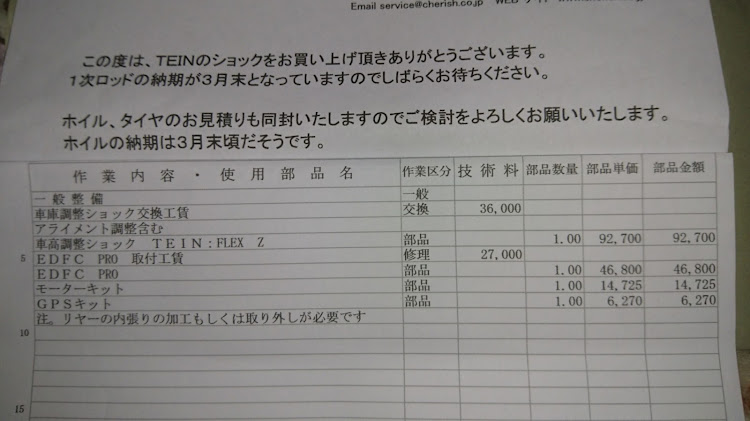 Email service@cherish.co.jp
この度は、TEINのショックをお買い上げ頂きありがとうございます。
1次ロッドの納期が3月末となっていますのでしばらくお待ちください。
ホイル、タイヤのお見積りも同封いたしますのでご検討をよろしくお願いいたします。
ホイルの納期は3月末頃だそうです。
作業内容・使用部品名 作業区分 技術料 部品数量 部品単価 部品金額
一般整備 一般
車庫調整ショック交換工賃 交換 36,000
アライメント調整含む
車高調整ショック TEIN:FLEX Z 部品 1.00 92,700 92,700
5 EDFC PRO 取付工賃 修理 27,000
EDFC PRO 部品 1.00 46,800 46,800
モーターキット 部品 1.00 14,725 14,725
GPSキット 部品 1.00 6,270 6,270
注。リヤーの内張りの加工もしくは取り外しが必要です
10
15